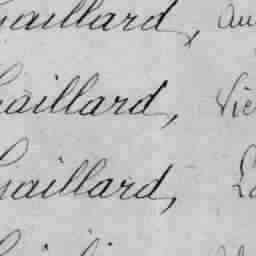 Gaillard, Au
Gaillard, Vic
Gaillard, La